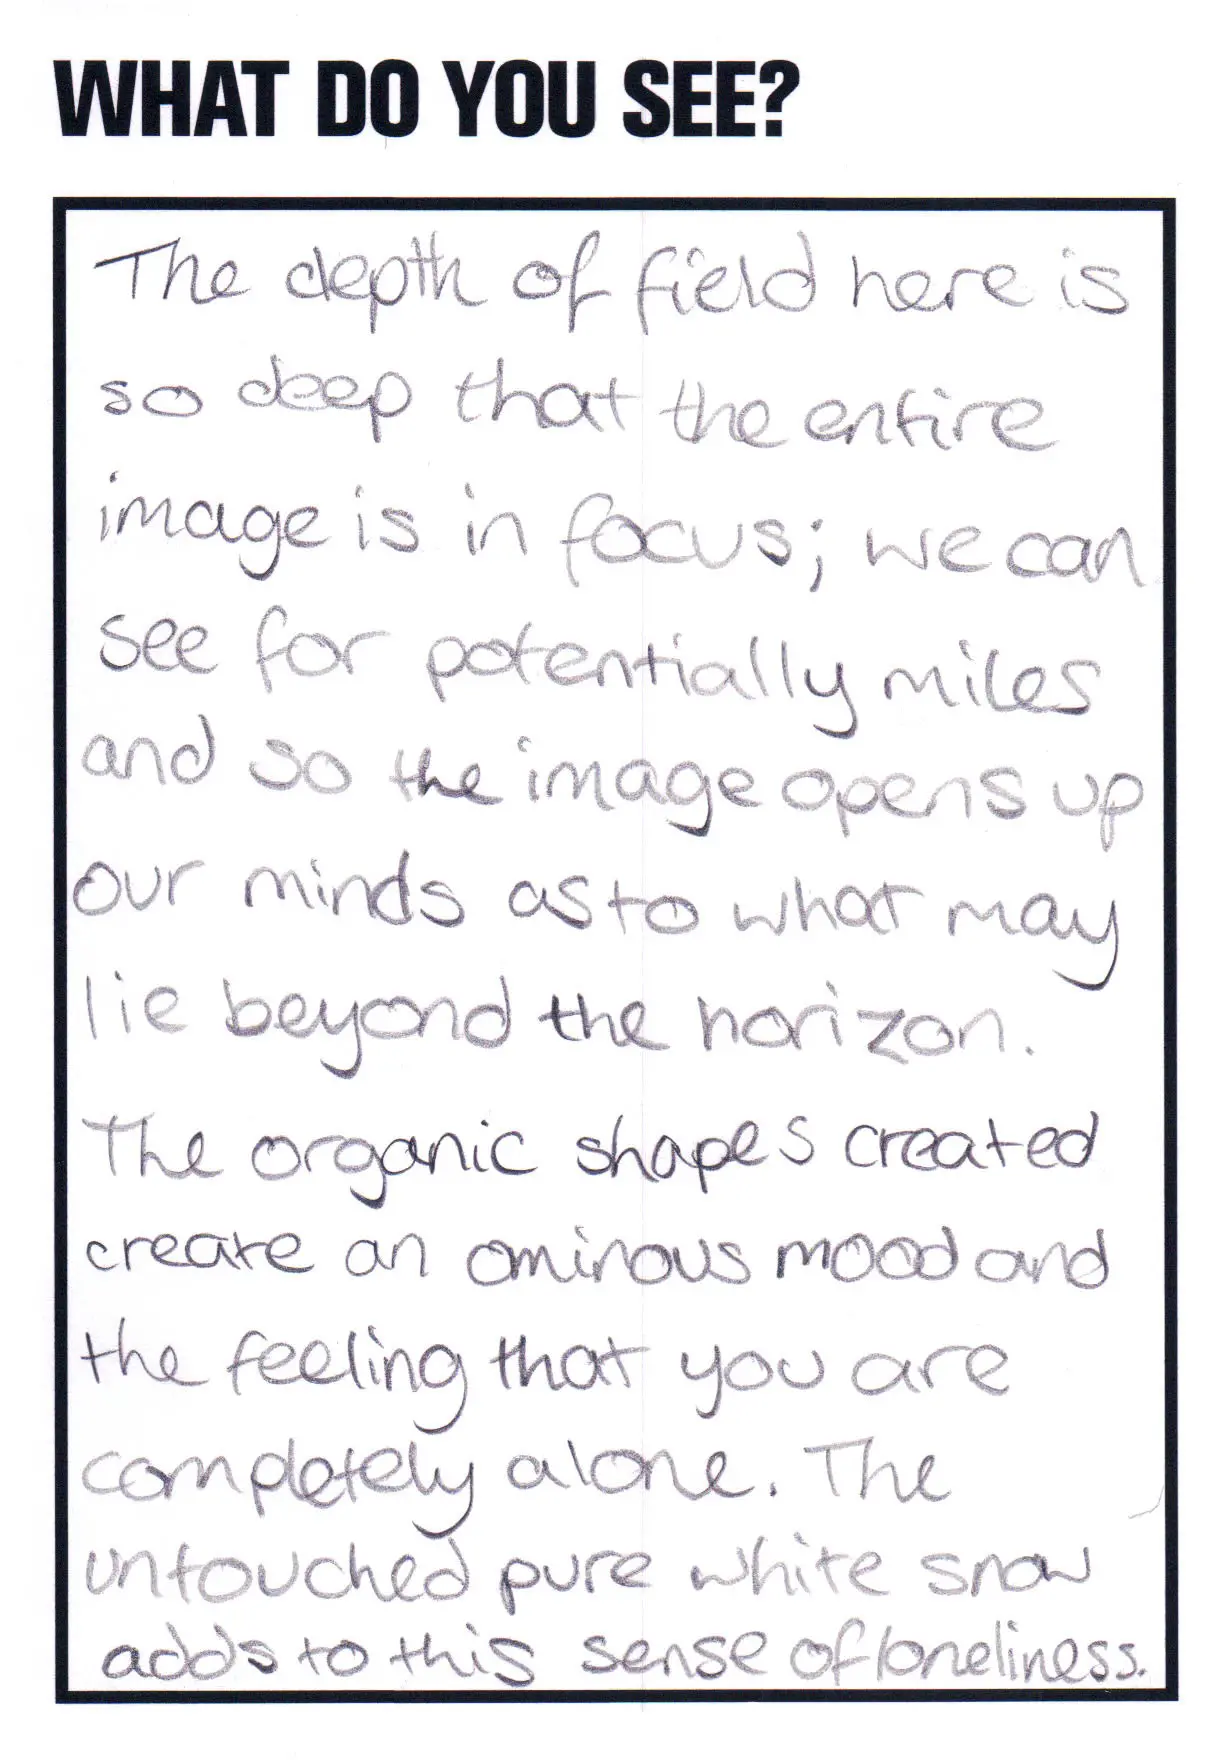 WHAT DO YOU SEE?
The depth of field here is
so deep that the entire
image is in focus; we can
see for potentially miles
and so the image opens up
our minds as to what may
lie beyond the horizon.
The organic shapes created
create an ominous mood and
the feeling that you are
completely alone. The
untouched pure white snow
adds to this sense of loneliness.